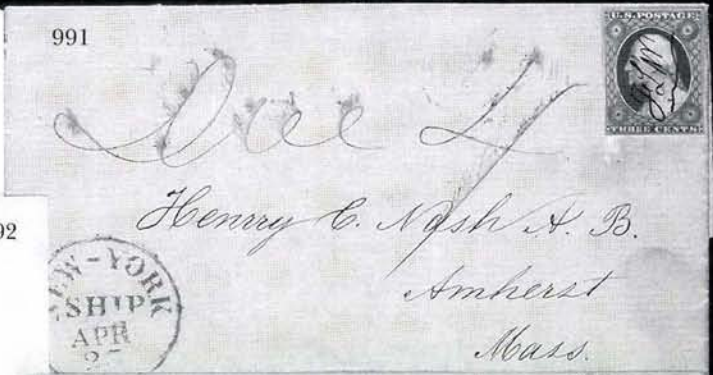 991
U.S. POSTAGE
THREE CENTS
Due 4
Henrry C. Nash A. B.
Amherst
Mass.
92
NEW-YORK
SHIP
APR